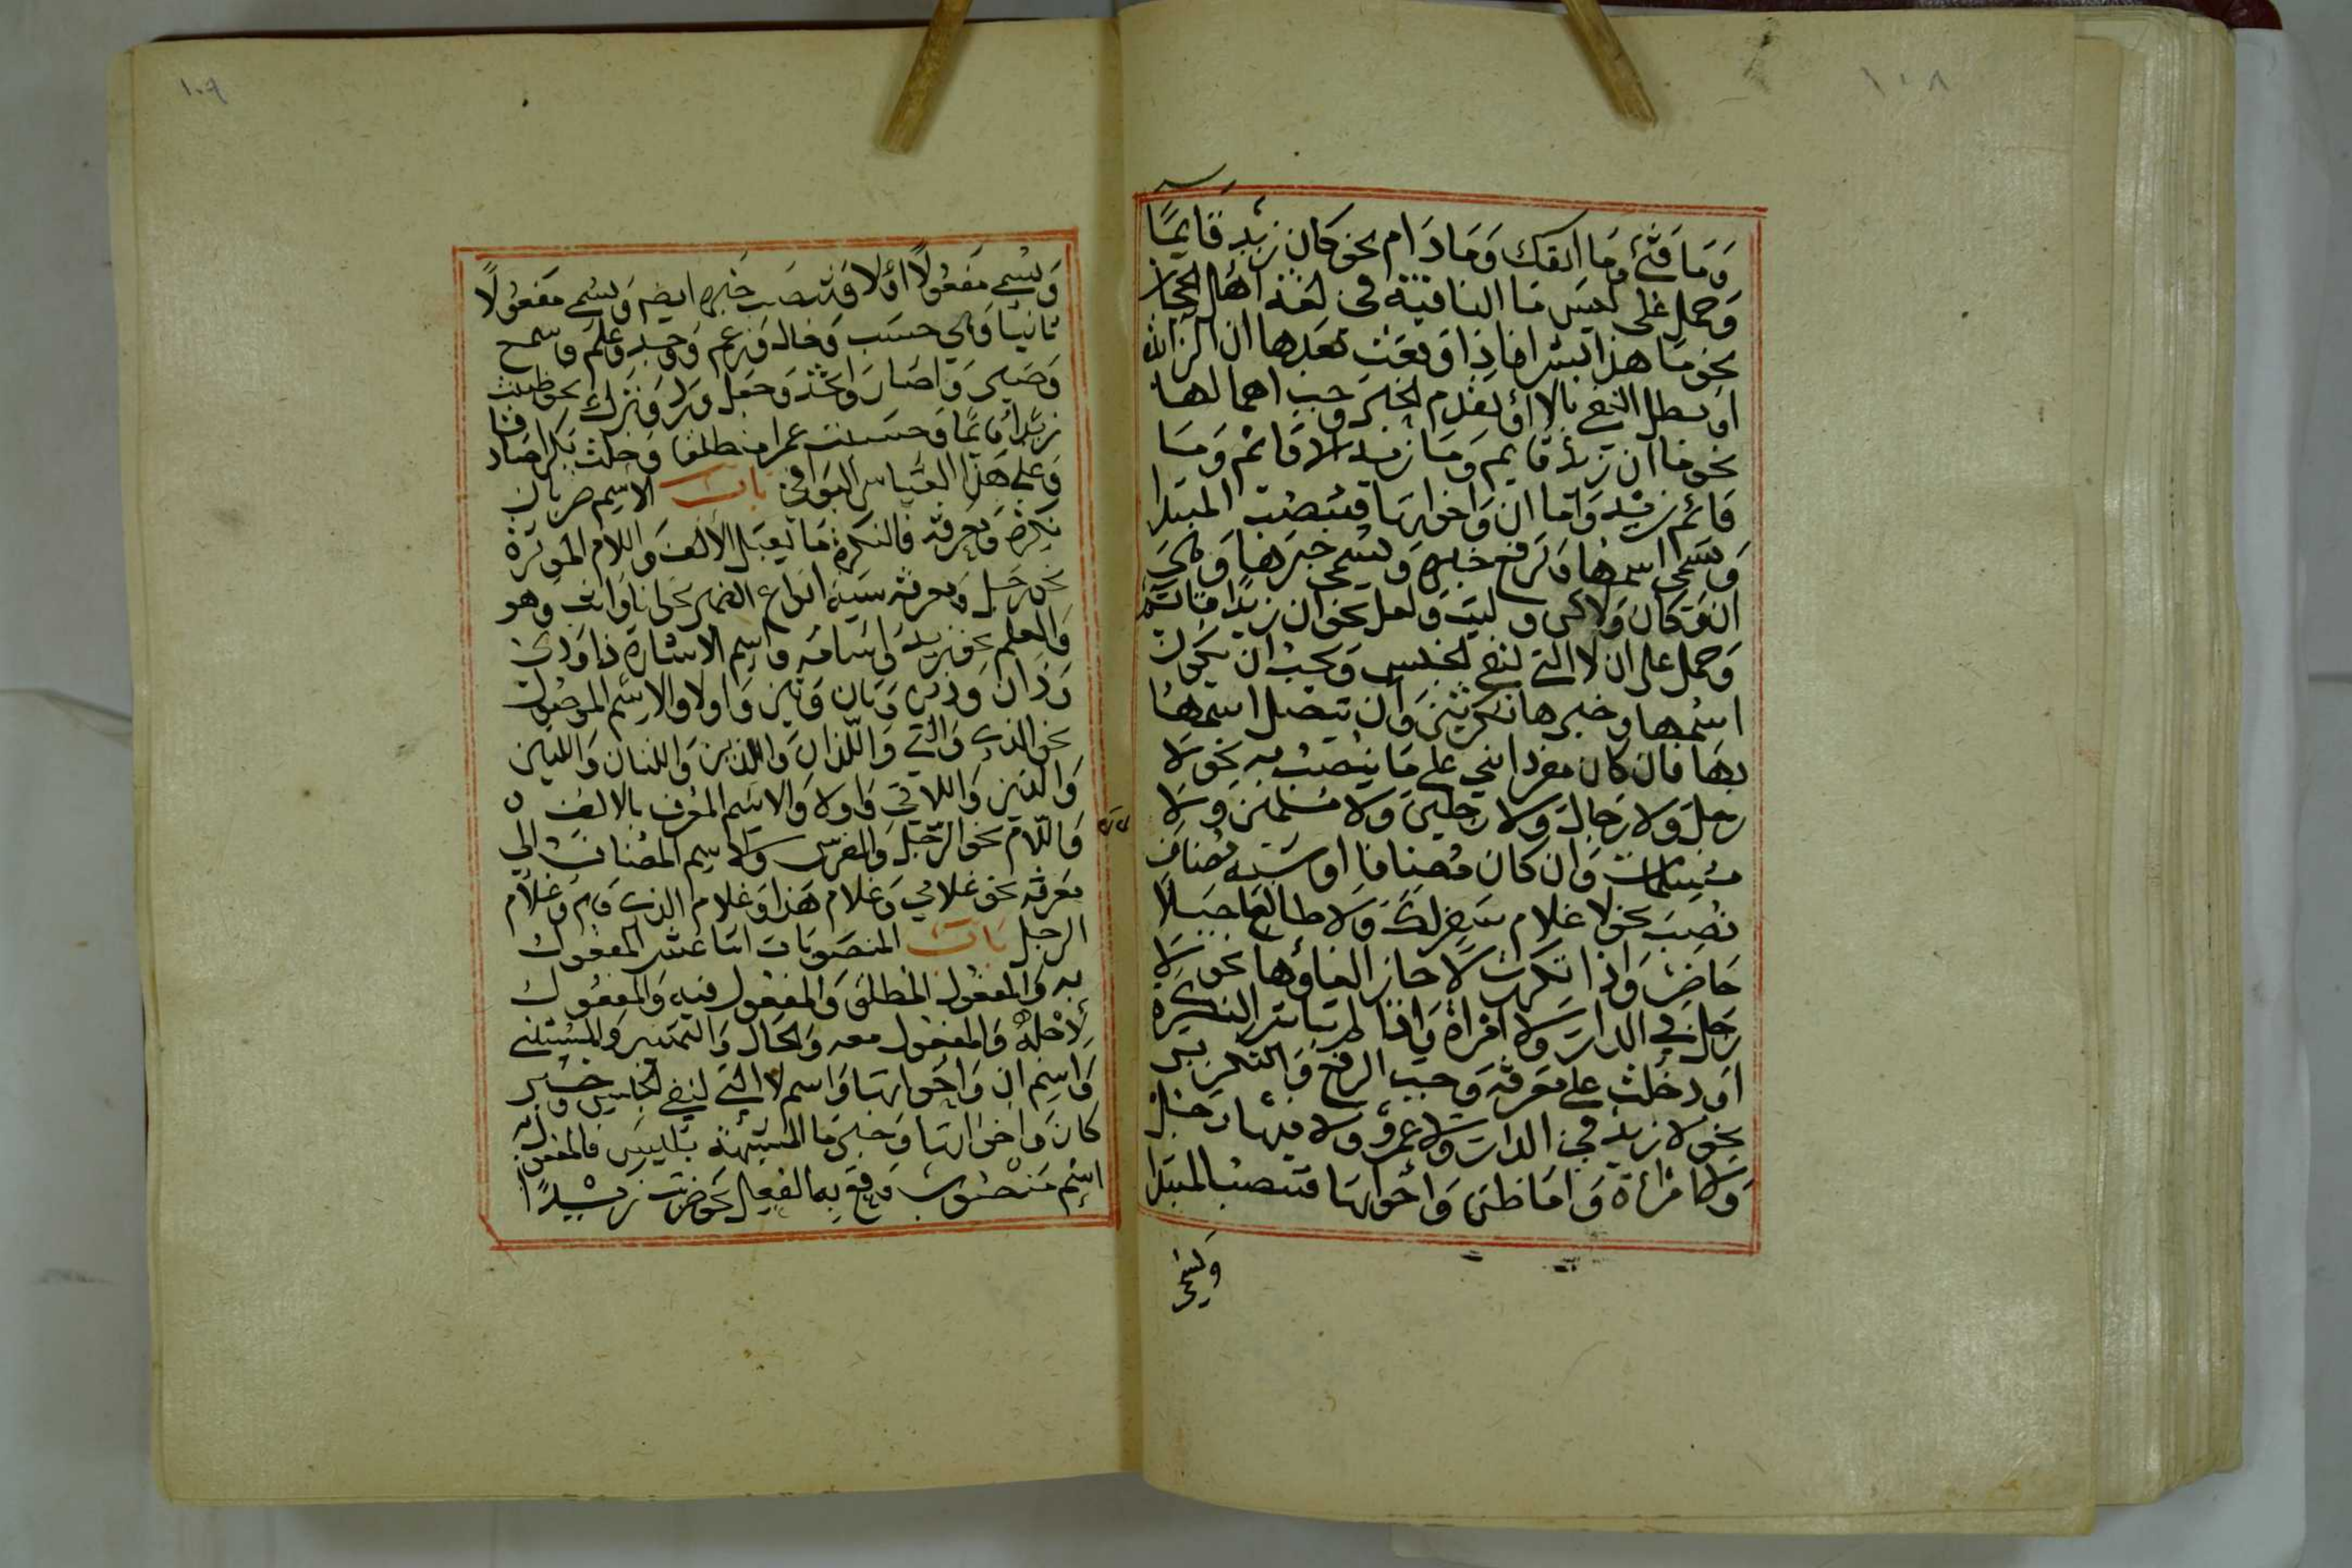 ١٠٨
وَمَا فَتِئَ وَمَا انفك وَمَا دَام نحو كان زيد قايمًا
وَحمل على ليسَ مَا النافية في لغة اهل الحجاز
نحو مَا هذا بشرا فاذا وقعت بعدها ان الزائدة
او بطل النفي بالا او تقدم الخبر وجب اهمالها
نحو ما ان زيد قايم وَمَا زيد الا قائم وَمَا
قائم زيد وَاما ان وَاخواتها فتنصب المبتدا
وَيسمى اسمها وَترفع خبره وَيسمى خبرها وَهي
ان وَكان وَلكن وليت ولعل نحو ان زيدا قائم
وَحمل على ان لا التي لنفي الجنس وَيجب ان يكون
اسمها وخبرها نكرتين وَان يتصل اسمها
بها فان كان مفردا بني على مَا ينصب به نحو لا
رجل وَلا رجال وَلا رجلين وَلا مسلمين وَلا
مسلمات وَان كان مضافا او شبه مضاف
نصب نحو لا غلام سفر لك وَلا طالعا جبلا
حَاضر وَاذا تكررت لا جاز الغاؤها نحو لا
رجل في الدار وَلا امراة وَاذا لم تباشر النكرة
او دخلت على معرفة وَجب الرفع وَالتكرير
نحو لا زيد في الدار وَلا عمرو ولا فيها رجل
وَلا امرأة وَاما ظن وَاخواتها فتنصب المبتدا
وَيسمى
١٠٩
وَيسمى مفعولًا اولا وَتنصب خبره ايضا وَيسمى مفعولًا
ثانيا وَهي حسب وَخال وَزعم وَوجد وَعلم وَسمع
وَصير وَاصار وَاتخذ وَجعل ورد وَترك نحو ظننت
زيدًا قايمًا وَحسبت عمرا منطلقا وَخلت بكرا صادقا
وَعلى هذا القياس البواقي باب الاسم ضربان
نكرة وَمعرفة فالنكرة مَا يقبل الالف وَاللام الموثرة
نحو رجل وَمعرفة ستة انواع الضمير نحو انا وَانت وَهو
وَالعلم نحو زيد وَاسامة وَاسم الاشارة ذا وَذي
وَذان وَذين وَتان وَتين وَاولا والاسم الموصول
نحو الذي وَالتي وَاللذان وَاللذين وَاللتان وَاللتين
وَالذين وَاللاتي وَاولا وَالاسم المعرف بالالف
وَاللام نحو الرجل وَالفرس وَالاسم المضاف الى
معرفة نحو غلامي وَغلام هذا وَغلام الذي قام وَغلام
الرجل باب المنصوبات اثنا عشر المفعول
به وَالمفعول المطلق وَالمفعول فيه وَالمفعول
لِاجله وَالمفعول معه وَالحال وَالتمييز وَالمستثنى
وَاسم ان وَاخواتها وَاسم لا التي لنفي الجنس وَخبر
كان وَاخواتها وَخبر مَا المشبهة بليس فالمفعول به
اسم منصوب وَقع به الفعل نحو ضربت زيدًا